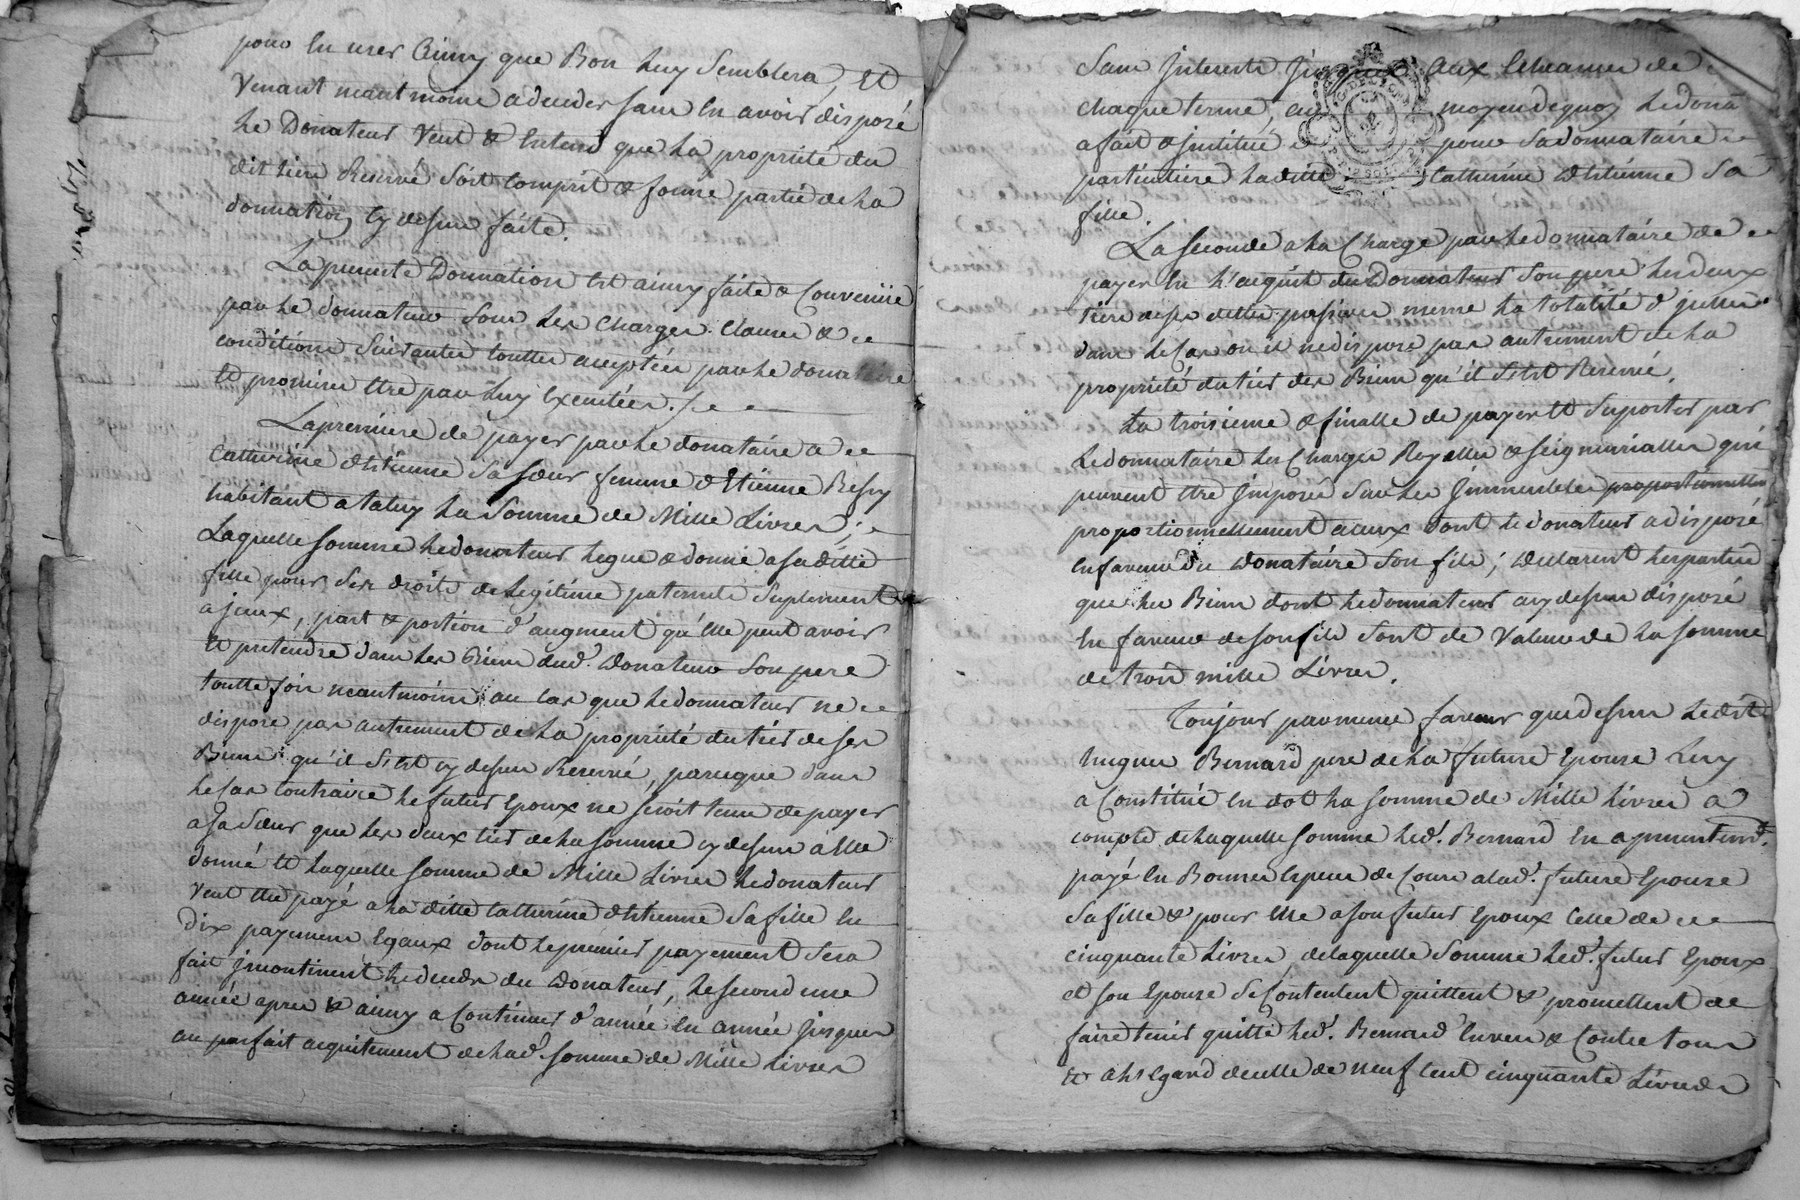 pour En user Ainsy que Bon Luy Semblera, Et
Venant neantmoins a deceder sans En avoir disposé
Le Donateur Veut & Entend que La propriété du
dit tiers Reservé Soit Comprit & fasse partie de La
donnation Cy dessus faite.
La presente Donnation Est ainsy faite & Convenüe
par Le donnateur Sous Les Charges Clauses &
conditions Suivantes touttes acceptées par Le donataire
Et promises Etre par Luy Executées./.
La premiere de payer par Le donataire a
Catherine d'Etienne Sa sœur femme d'Etienne
habitant a La Somme de Mille Livres;
Laquelle somme Le donateur Legue & donne a sa ditte
fille pour Ses droits de Legitime paternelle Suplement
a jceux, part & portion d'augment qu'Elle peut avoir
Et pretendre dans Les Biens dud. Donateur Son pere
toutte fois neantmoins au Cas que Le donnateur ne
dispose pas autrement de La propriété du tiers de ses
Biens qu'il S'Est cy dessus Reservé, parceque dans
Le Cas Contraire Le futur Epoux ne seroit tenu de payer
a Sa sœur que Les deux tiers de La somme cy dessus a Elle
donné Et Laquelle somme de Mille Livres Le donateur
veut Etre payé a La ditte Catherine d'Etienne Sa fille En
Dix payemens Egaux dont Le premier payement Sera
fait jncontinent Le deceds du Donateur, Le second une
année apres & ainsy a Continuer d'année En année jusques
au parfait acquittement de Lad. somme de Mille Livres
Sans jnterests jusques aux Echeances de
chaque terme, au moyen de quoy Le dona
a fait & jnstitué pour Sa donnataire
particuliere La ditte Catherine d'Etienne Sa
fille.
La seconde a La Charge par Le donnataire de
payer En L'acquit du Donnateur Son pere Les deux
tiers de ses dettes passives meme La totalité d'jcelles
dans Le Cas où il ne dispose pas autrement de La
propriété du tiers des Biens qu'il S'Est Reservé.
La troisieme & finalle de payer Et Suporter par
Le donnataire Les Charges Royalles & seigneurialles qui
peuvent Etre jmposés Sur Les jmmeubles proportionnelles
proportionnellement a ceux dont Le donateur a disposé
En faveur du Donataire Son fils; Declarent Les parties
que Les Biens dont Le donnateur a cy dessus disposé
En faveur de son fils Sont de Valeur de La somme
de trois mille Livres.
Toujours par meme faveur que dessus Le dit
hugues Bernard pere de La future Epouse Luy
a Constitué En dot La somme de Mille Livres a
compte de Laquelle somme Led. Bernard En a presentement
payé En Bonnes Especes de Cours a Lad. future Epouse
Sa fille & pour Elle a son futur Epoux Celle de
cinquante Livres, de Laquelle Somme Led. futur Epoux
et son Epouse Se Contentent quittent & promettent de
faire tenir quitte Led. Bernard Envers & Contre tous
Et a L'Egard de celle de neuf cent cinquante Livres